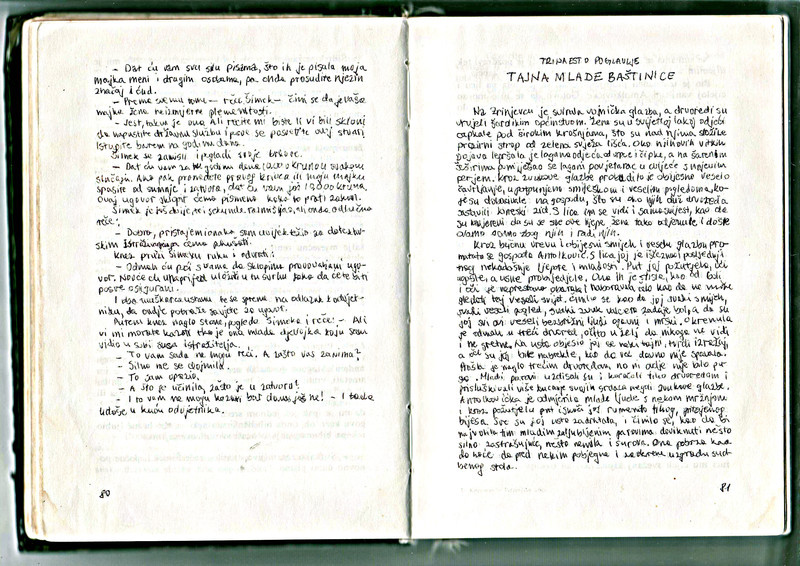 — Dat ću vam svu silu pisama, što ih je pisala moja
majka meni i drugim osobama, pa onda prosudite njezin
značaj i ćud.
— Prema svemu tome — reče Šimek — čini se da je vaša
majka žena neizmjerne plemenitosti.
— Jest, takva je ona. Ali recite mi biste li vi bili skloni
da napustite državnu službu i posve se posvetite ovoj stvari,
istupite barem na godinu dana.
Šimek se zamisli i pogladi svoje brkove.
— Dat ću vam za tu godinu dana 1000 kruna u svakom
slučaju. Ako pak pronađete pravog krivca ili moju majku
spasite od sumnje i zatvora, dat ću vam još 13000 kruna.
Ovaj ugovor sklopit ćemo pismeno kako to prati zakon.
Šimek je još dvije, tri sekunde razmišljao, ali onda odlučno
reče:
— Dobro, pristajem
Knez pruži Šimeku ruku i odvrati:
— Odmah ću poći s vama da sklopimo pravovaljani ugo-
vor. Novce ću unaprijed uložiti u tu svrhu tako da ćete biti
posve osigurani.
I oba muškarca ustanu te se spreme na odlazak k odvjet-
niku, da ondje potraže savjete za ugovor.
Putem knez naglo stane, pogleda Šimeka i reče: — Ali
vi mi morate kazati tko je ona mlada djevojka koju sam
vidio u sobi suca istražitelja.
— To vam sada ne mogu reći. A zašto vas zanima?
— Silno me se dojmila.
— To sam opazio.
— A što je učinila, zašto je u zatvoru?
— I to vam ne mogu kazati bar danas još ne! — I tada
uđoše u kuću odvjetnika.
80
TRINAESTO POGLAVLJE
TAJNA MLADE BAŠTINICE
Na Zrinjevcu je svirala vojnička glazba, a drvoredi su
vrvjeli šarolikim općinstvom. Žene su u svijetloj lakoj odjeći
capkale pod širokim krošnjama, što su nad njima složile
prozirni strop od zelena svježa lišća. Oko njihovih vitkih
pojava lepršala je lagana odjeća od svile i čipke, a na šarenim
šeširima primiješao se lagani povjetarac u cvijeće s mijenjom
perjem. Kroz zvukove glazbe probadalo je obijesno veselo
čavrljanje, upotpunjeno smiješkom i veselim pogledima, ko-
je su dovabile na gospodu, što su oko njih duž drvoreda
sastavili kineski zid. S lica im se vidi i samosvijest, kao da
su uvjereni da su se sve ove lijepe žene tako odjenule i došle
ovamo samo zbog njih i radi njih.
Kroz bučnu vrevu i obijesni smijeh i veselu glazbu pro-
matrala se gospođa Antolković. S lica joj je iščeznuo posljednji
trag nekadašnje ljepote i mladosti. Put joj požutjela, oči
upale, a usne problijedjele. Ona ih je stisla, kao od boli
i oči se neprestano obarala i
gledati taj veseli svijet. Činilo se kao da joj svaki smijeh,
svaki veseli pogled, svaki zvuk valcera zadaje bol, a da su
joj svi ovi veseli bezbrižni ljudi ogavni i mrski. Okrenula
je odmah u treći drvored, očito u želji da nikoga ne vidi
i ne sretne. Na usta objesio joj se neki tajni, tvrdi izražaj,
a oči su joj bile natekle, kao da već davno nije spavala.
Prošla je naglo trećim drvoredom, no ni ovdje nije bilo pu-
sto. Mladi parovi uzdisali su i koračali tiho drvoredom i
prisluškivali više kucanje svojih srdaca negoli zvukove glazbe.
Antolkovićka je odmjerila mlade ljude s nekom mržnjom
i kroz požutjelu put iskoči joj rumenilo tihog, prigušenog
bijesa. Sve su joj usne zadrhtale, i činilo se, kao da bi
najvoljela tim mladim zaljubljenim parovima doviknuti nešto
silno zastrašujuće, nešto mrvila i surova. Ona pobrza kao
da hoće da pred nekim pobjegne i zaokrene uz zgradu sud-
benog stola.
81